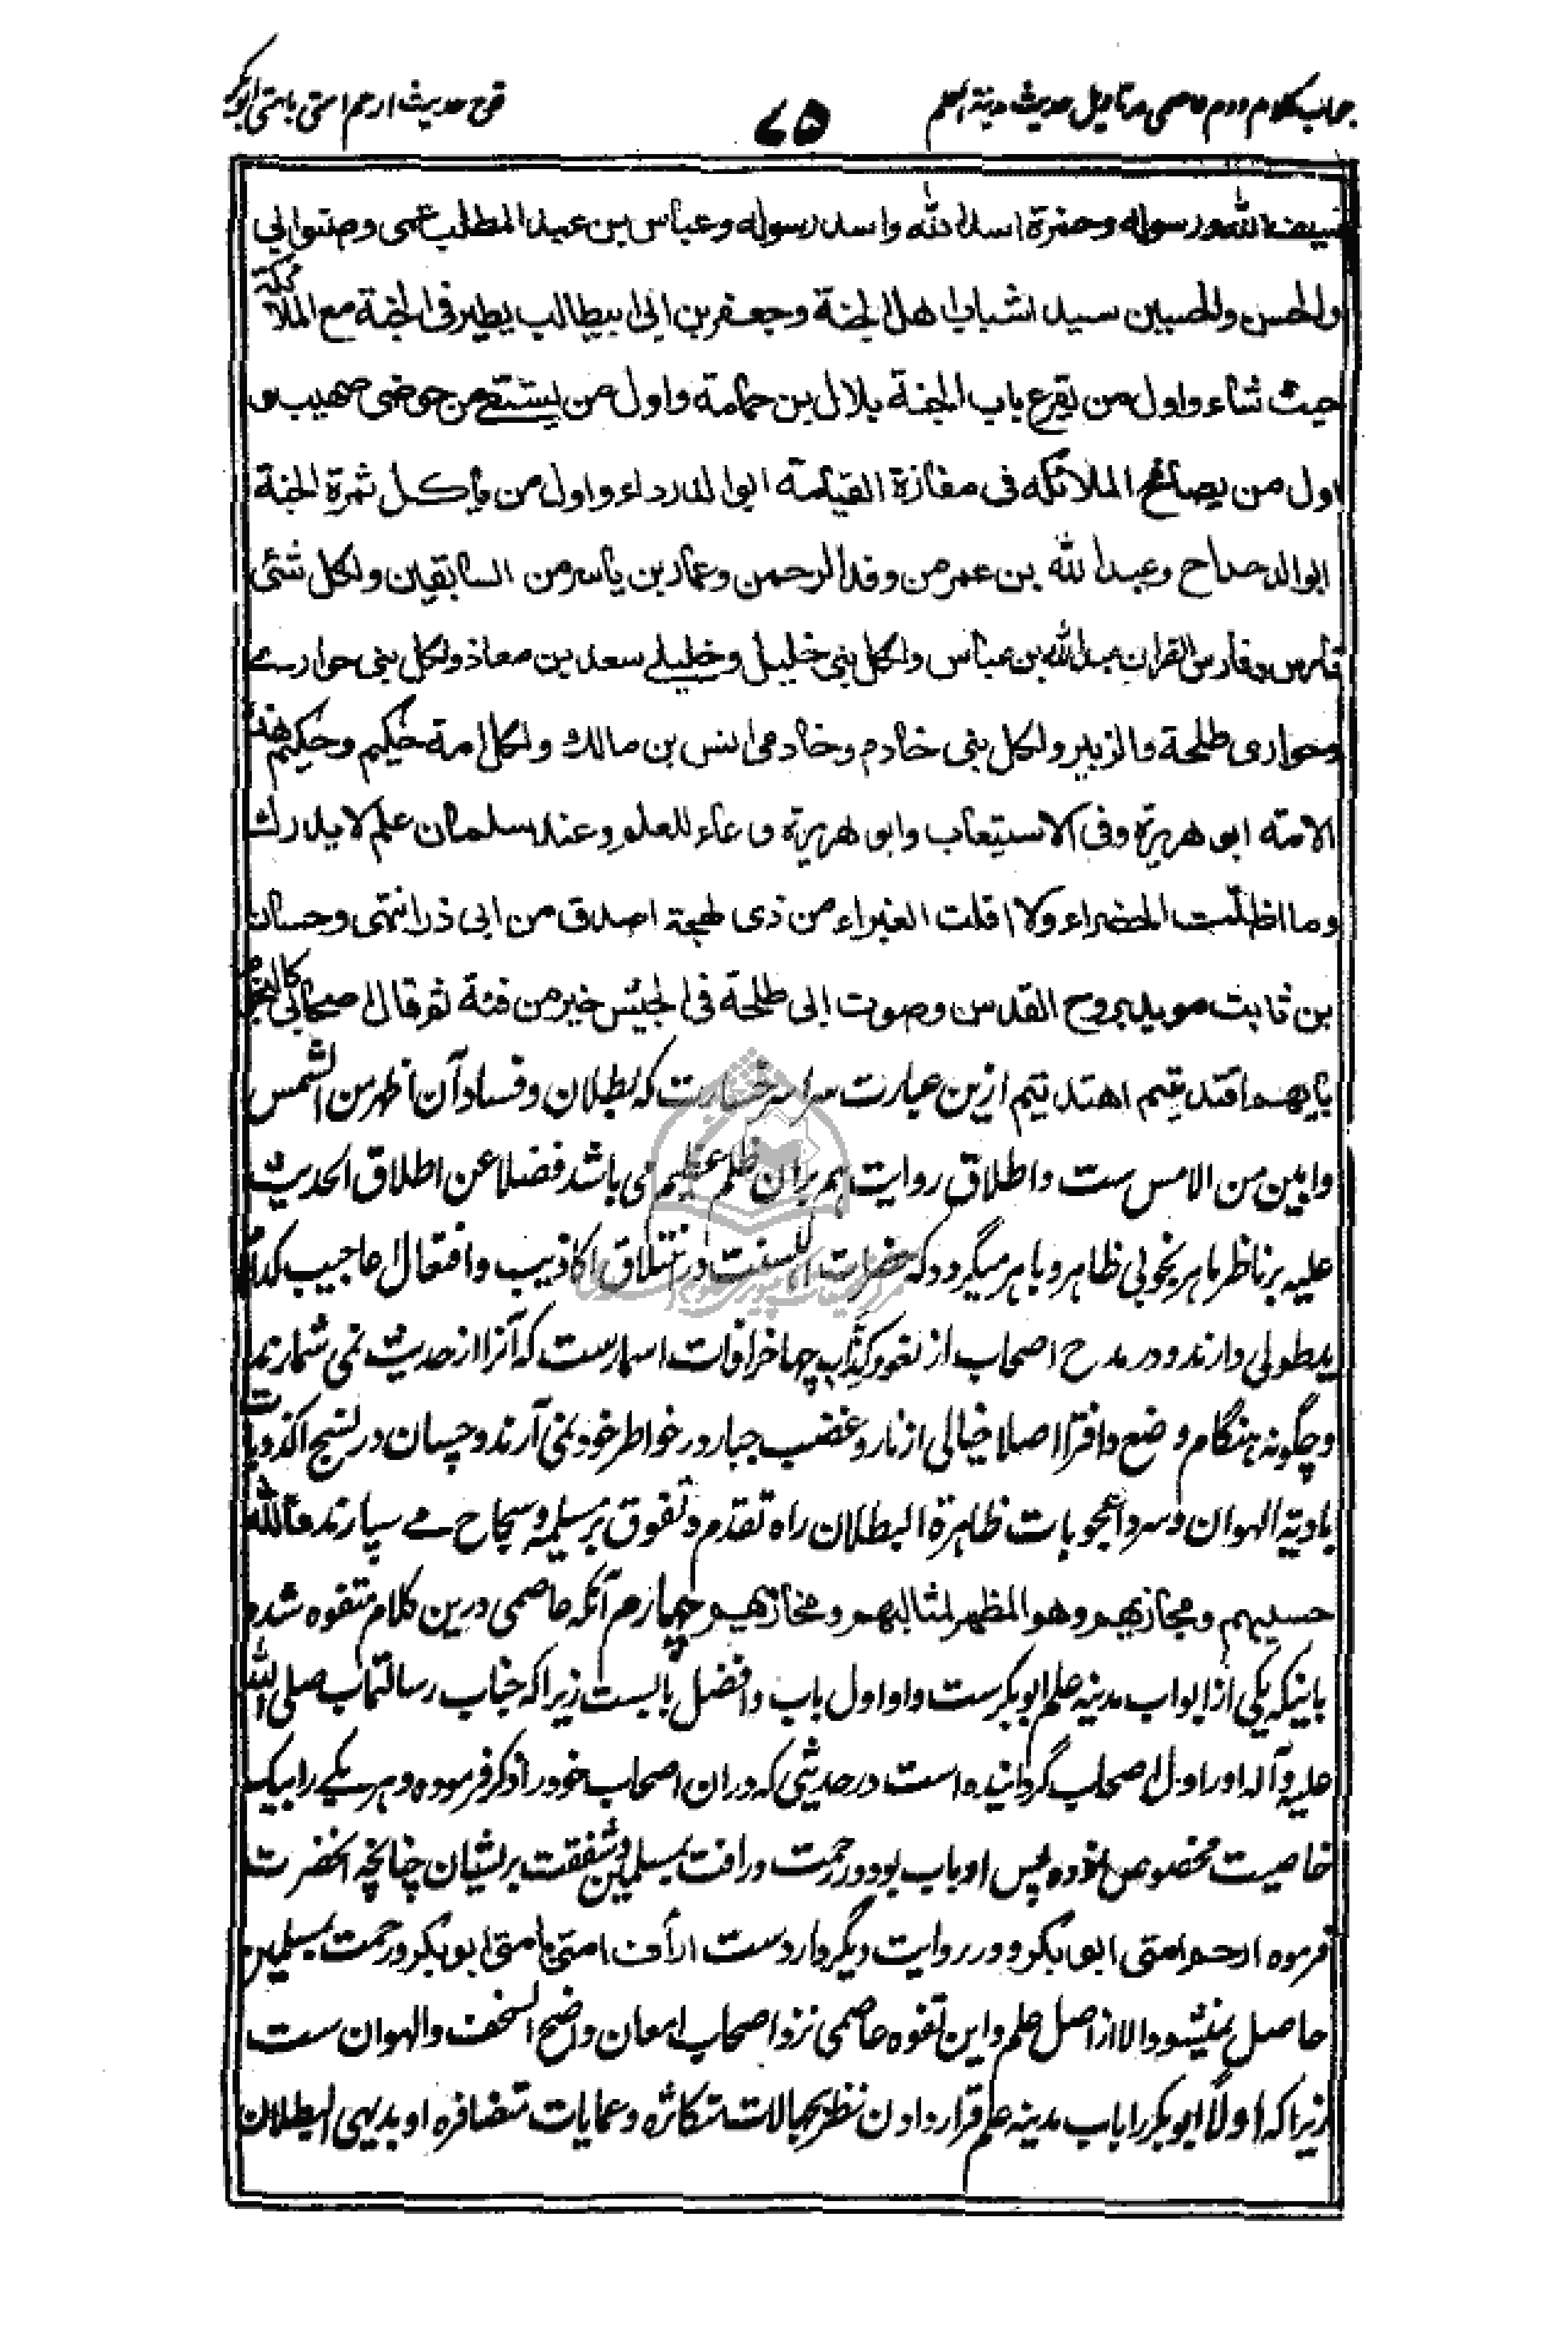 جواب کلام دوم عاصمی در تاویل حدیث مدینة العلم
۷۵
قدح حدیث ارحم امتی بامتی ابوبکر
سیف الله و رسوله وحمزة اسد الله واسد رسوله وعباس بن عبد المطلب عمی وصنو ابی
والحسن والحسین سیدا شباب اهل الجنة وجعفر بن ابی ابیطالب یطیر فی الجنة مع الملائکة
حیث شاء واول من یقرع باب الجنة بلال بن حمامة واول من یستقے من حوضی صهیب و
اول من یصافح الملائکه فی مفازة القیامته ابوا الدرداء واول من یأکل ثمرة الجنة
ابوالدحداح وعبد الله بن عمر من وفد الرحمن وعمار بن یاسر من السابقین ولکل شئ
فارس وفارس القران عبد الله بن عباس ولکل نبی خلیل وخلیلے سعد بن معاذ ولکل نبی حوارے
وحواری طلحة والزبیر ولکل نبی خادم وخادمی انس بن مالك ولکل امة حکیم وحکیم هذه
الامته ابو هریرة وفی الاستیعاب وابو هریرة وعاء للعلم وعند سلمان علم لا یدرك
وما اظلت الخضراء ولا اقلت الغبراء من ذی لهجة اصدق من ابی ذر انتهی وحسان
بن ثابت موید بروح القدس وصوت ابی طلحة فی الجیش خیر من فئة ثم قال اصحابی کالنجوم
بایهم اقتدیتم اهتدیتم ازین عبارت سراسر خسارت که بطلان و فساد آن اظهر من الشمس
وابین من الامس ست و اطلاق روایت هم بران ظلم عظیم می باشد فضلا عن اطلاق الحدیث
علیه بر ناظر ماهر بخوبی ظاهر و باهر میگردد که حضرات اهلسنت در اختلاق اکاذیب و افتعال اعاجیب کدام
ید طولی دارند و در مدح اصحاب از لغو و کذاب چها خرافات اسمارست که آنرا از حدیث نمی شمارند
و چگونه هنگام وضع و افترا اصلا خیالی از نار و غضب جبار در خواطر خود نمی آرند و چسان در نسج اکذوبات
بادیة الهوان و سرد اعجوبات ظاهرة البطلان راه تقدم و تفوق بر مسیلمه و سجاح مے سپارند فالله
حسیبهم ومجازیهم وهو المظهر لمثالبهم ومخازیهم چهارم آنکه عاصمی درین کلام متفوه شده
باینکه یکی از ابواب مدینه علم ابوبکرست و او اول باب و افضل بابست زیرا که جناب رسالتماب صلی الله
علیه و آله او را اول اصحاب گردانیده است در حدیثی که دران اصحاب خود را ذکر فرموده و هر یکے را بیک
خاصیت مخصوص نموده پس او باب بود در رحمت و رافت بمسلمین و شفقت بریشان چنانچه آنحضرت
فرموده ارحم امتی ابو بکر و در روایت دیگر واردست ارأف امتی بامتی ابو بکر و رحمت بمسلمین
حاصل نمیشود الا از اصل علم و این تفوه عاصمی نزد اصحاب امعان واضح السخف و الهوان ست
زیرا که اولا ابوبکر را باب مدینه علم قرار دادن نظر بجهالات متکاثره و عمایات متضافره او بدیهی البطلان